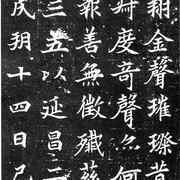 翔金聲璀璨
度奇聲尒何
報善無徵殲茲
三五以延昌二
戌朔十四日己